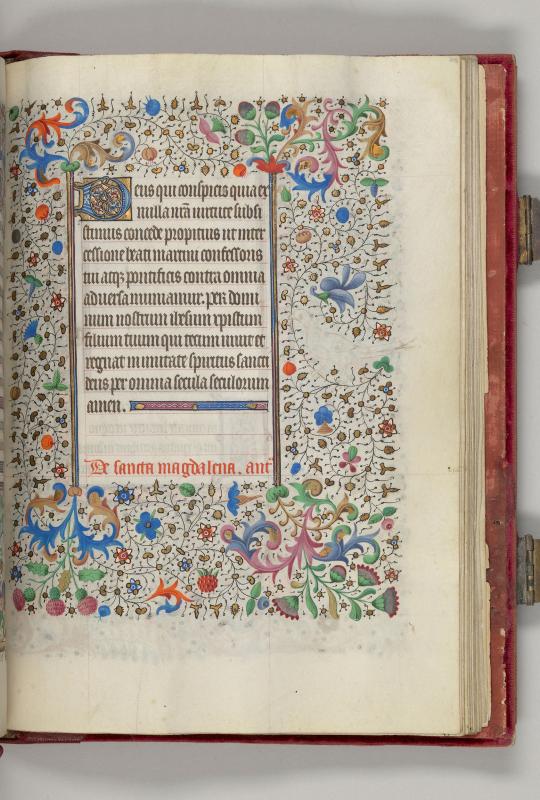 Deus qui conspicis quia ex
nulla nrã uirtute subsi
stimus concede propitius ut inter
cessione beati martini confessoris
tui atqz pontificis contra omnia
aduersa muniamur. per domi
num nostrum ihesum xpistum
filium tuum qui tecum uiuit et
regnat in unitate spiritus sancti
deus per omnia secula seculorum
amen.
De sancta magdalena. ant̃